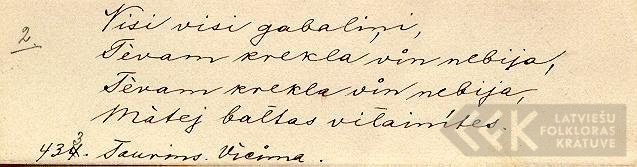 2
Visi visi gabaliņi,
Tèvam krekla vin nebija,
Tèvam krekla vin nebija,
Màtej baltas vilainìtes.
433. Taurins. Vicima.
LATVIEŠU
FOLKLORAS
KRĀTUVE